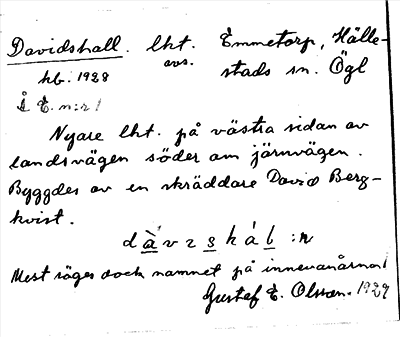 Davidshall. lht. Emmetorp, Hälle-
hb. 1928 avs. stads sn. Ögl
å E. n:r 1
Nyare lht. på västra sidan av
landsvägen söder om järnvägen.
Byggdes av en skräddare David Berg-
kvist.
Mest säges dock namnet på innevånarna!
Gustaf E. Olsson. 1929